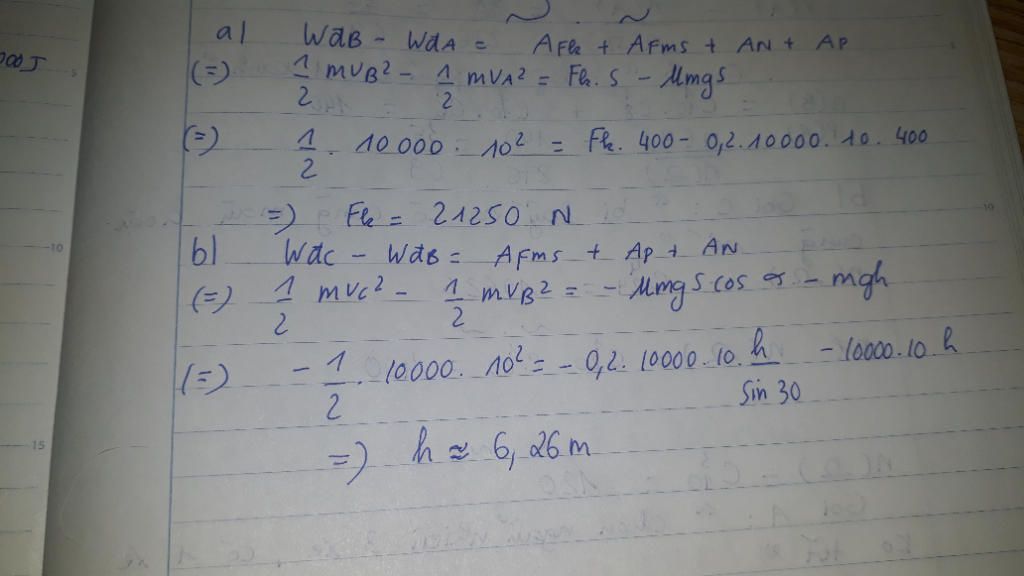 000J
a) WđB - WđA = AFk + AFms + AN + AP
(=) 1/2 mvB² - 1/2 mvA² = Fk. S - μmgS
(=) 1/2 . 10 000 . 10² = Fk. 400 - 0,2.10000. 10. 400
=) Fk = 21250 N
b) WđC - WđB = AFms + AP + AN
(=) 1/2 mvC² - 1/2 mvB² = - μmgS cos α - mgh
(=) - 1/2 . 10000. 10² = - 0,2. 10000. 10. h/sin 30 - 10000.10 h
=) h ≈ 6,26 m